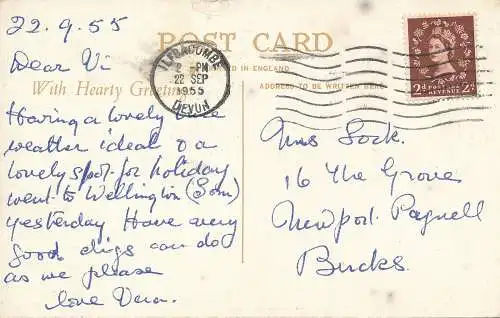 22.9.55
POST CARD
ILFRACOMBE
2 - PM
22 SEP
1955
DEVON
Dear Vi
IN ENGLAND
With Hearty Greetin
ADDRESS TO BE WRITTEN HERE
2d POSTAGE REVENUE 2d
Having a lovely time
weather ideal & a
lovely spot for holiday
went to Wellington (Som)
yesterday Have very
good digs can do
as we please
love Vera.
Mrs Lock.
16 The Grove
Newport Pagnell
Bucks.